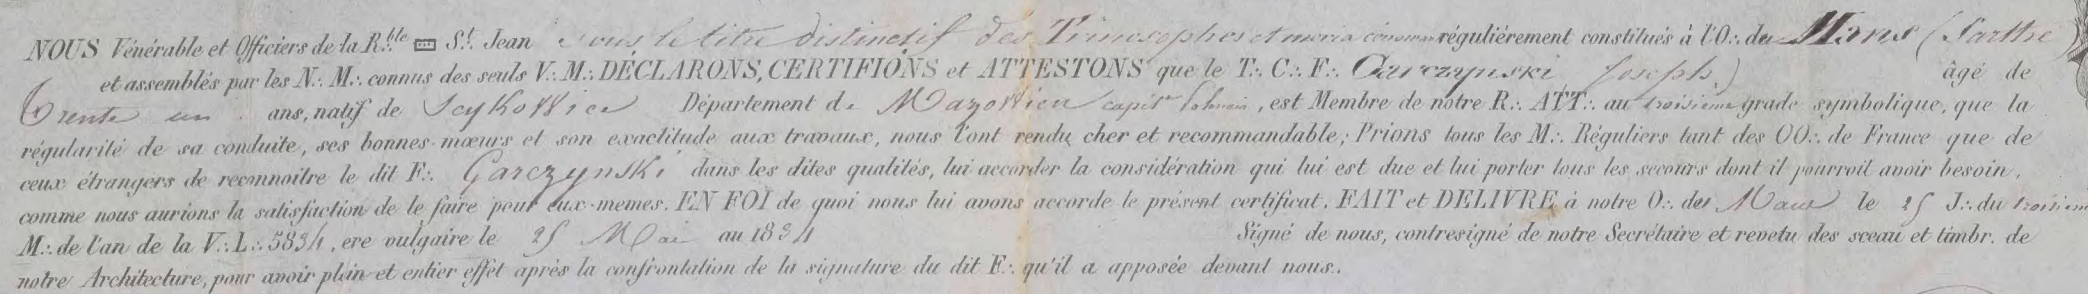 NOUS Vénérable et Officiers de la R.˙.ble St. Jean sous le titre distinctif des régulièrement constitués à l'O.˙. du Mans (Sarthe)
et assemblés par les N.˙. M.˙. connus des seuls V.˙. M.˙. DÉCLARONS, CERTIFIONS et ATTESTONS que le T.˙. C.˙. F.˙. Garczynski Joseph) âgé de
trente un ans, natif de Département de capit.e polonais, est Membre de notre R.˙. ATT.˙. au troisième grade symbolique, que la
régularité de sa conduite, ses bonnes mœurs et son exactitude aux travaux, nous l'ont rendu cher et recommandable; Prions tous les M.˙. Réguliers tant des OO.˙. de France que de
ceux étrangers de reconnoitre le dit F.˙. Garczynski dans les dites qualités, lui accorder la considération qui lui est due et lui porter tous les secours dont il pourroit avoir besoin,
comme nous aurions la satisfaction de le faire pour eux-memes. EN FOI de quoi nous lui avons accorde le présent certificat. FAIT et DELIVRE à notre O.˙. du Mans le 25 J.˙. du troisieme
M.˙. de l'an de la V.˙. L.˙. 5834, ere vulgaire le 25 Mai au 1834 Signé de nous, contresigné de notre Secrétaire et revetu des sceau et timbr. de
notre Architecture, pour avoir plein et entier effet après la confrontation de la signature du dit F.˙. qu'il a apposée devant nous.